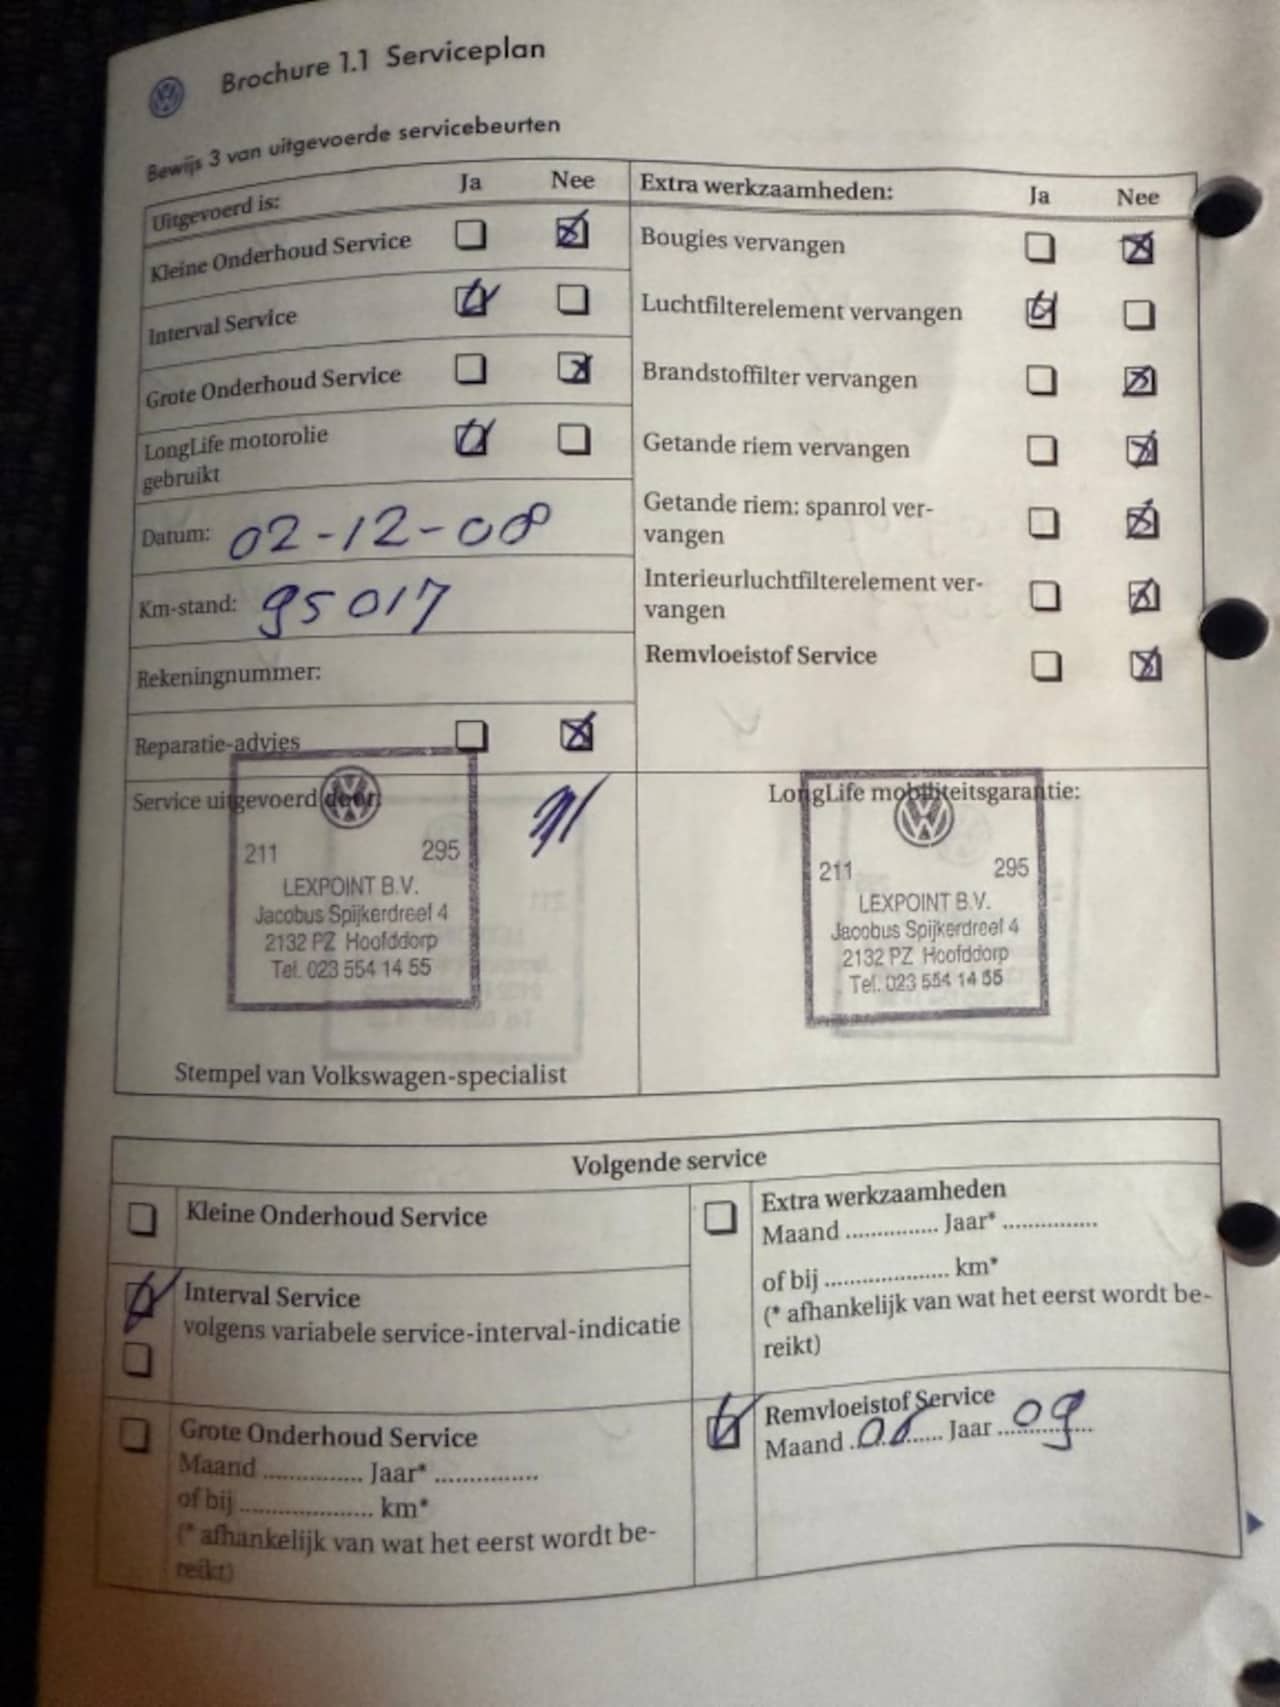 Brochure 1.1 Serviceplan
Bewijs 3 van uitgevoerde servicebeurten
Uitgevoerd is: Ja Nee
Kleine Onderhoud Service
Interval Service
Grote Onderhoud Service
LongLife motorolie
gebruikt
Datum: 02-12-08
Km-stand: 95017
Rekeningnummer:
Reparatie-advies
Extra werkzaamheden: Ja Nee
Bougies vervangen
Luchtfilterelement vervangen
Brandstoffilter vervangen
Getande riem vervangen
Getande riem: spanrol ver-
vangen
Interieurluchtfilterelement ver-
vangen
Remvloeistof Service
Service uitgevoerd door:
211 295
LEXPOINT B.V.
Jacobus Spijkerdreef 4
2132 PZ Hoofddorp
Tel. 023 554 14 55
Stempel van Volkswagen-specialist
LongLife mobiliteitsgarantie:
211 295
LEXPOINT B.V.
Jacobus Spijkerdreef 4
2132 PZ Hoofddorp
Tel. 023 554 14 55
Volgende service
Kleine Onderhoud Service
Interval Service
volgens variabele service-interval-indicatie
Grote Onderhoud Service
Maand ............... Jaar* ...............
of bij ................... km*
(* afhankelijk van wat het eerst wordt be-
reikt)
Extra werkzaamheden
Maand .............. Jaar* ..............
of bij ................... km*
(* afhankelijk van wat het eerst wordt be-
reikt)
Remvloeistof Service
Maand Jaar 09